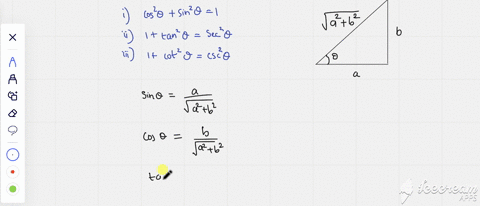 i) cos²θ + sin²θ = 1
ii) 1 + tan²θ = sec²θ
iii) 1 + cot²θ = csc²θ
√a²+b²
b
θ
a
sinθ = a/√a²+b²
cosθ = b/√a²+b²
ta
iFreecam
APPS